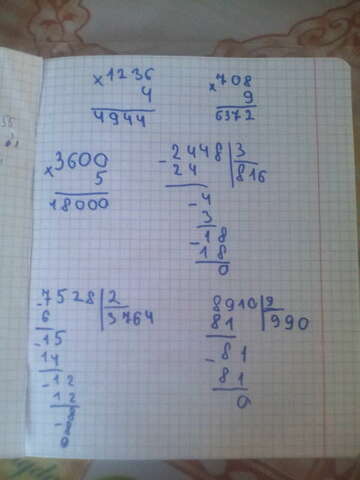 ×1236
4
4944
×708
9
6372
×3600
5
18000
-2448 | 3
24 | 816
-4
3
-18
18
0
-7528 | 2
6 | 3764
-15
14
-12
12
8910 | 9
81 | 990
-81
81
0